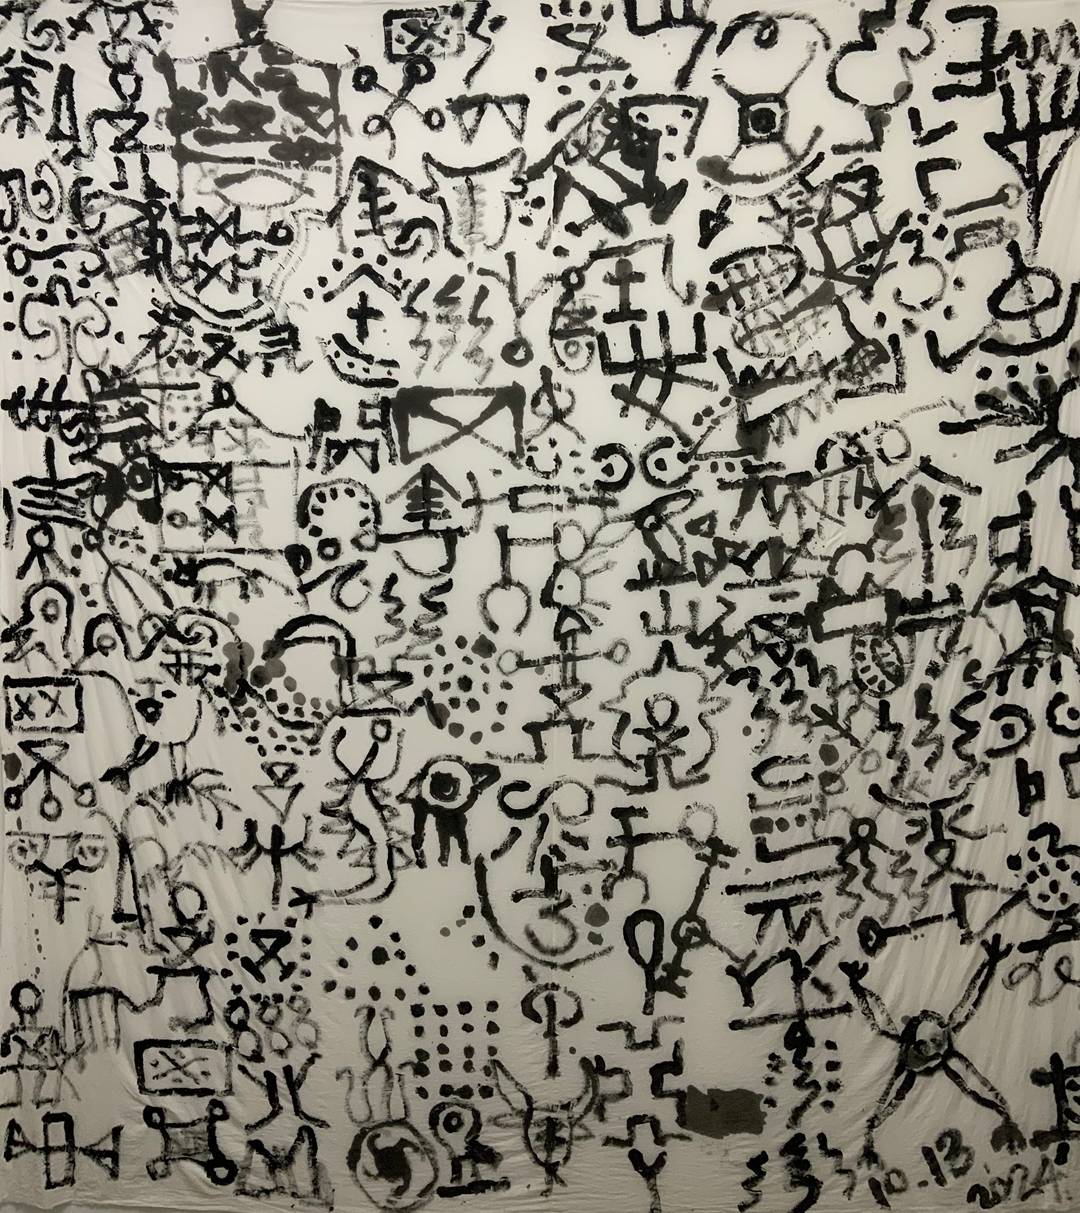 10.13
2024